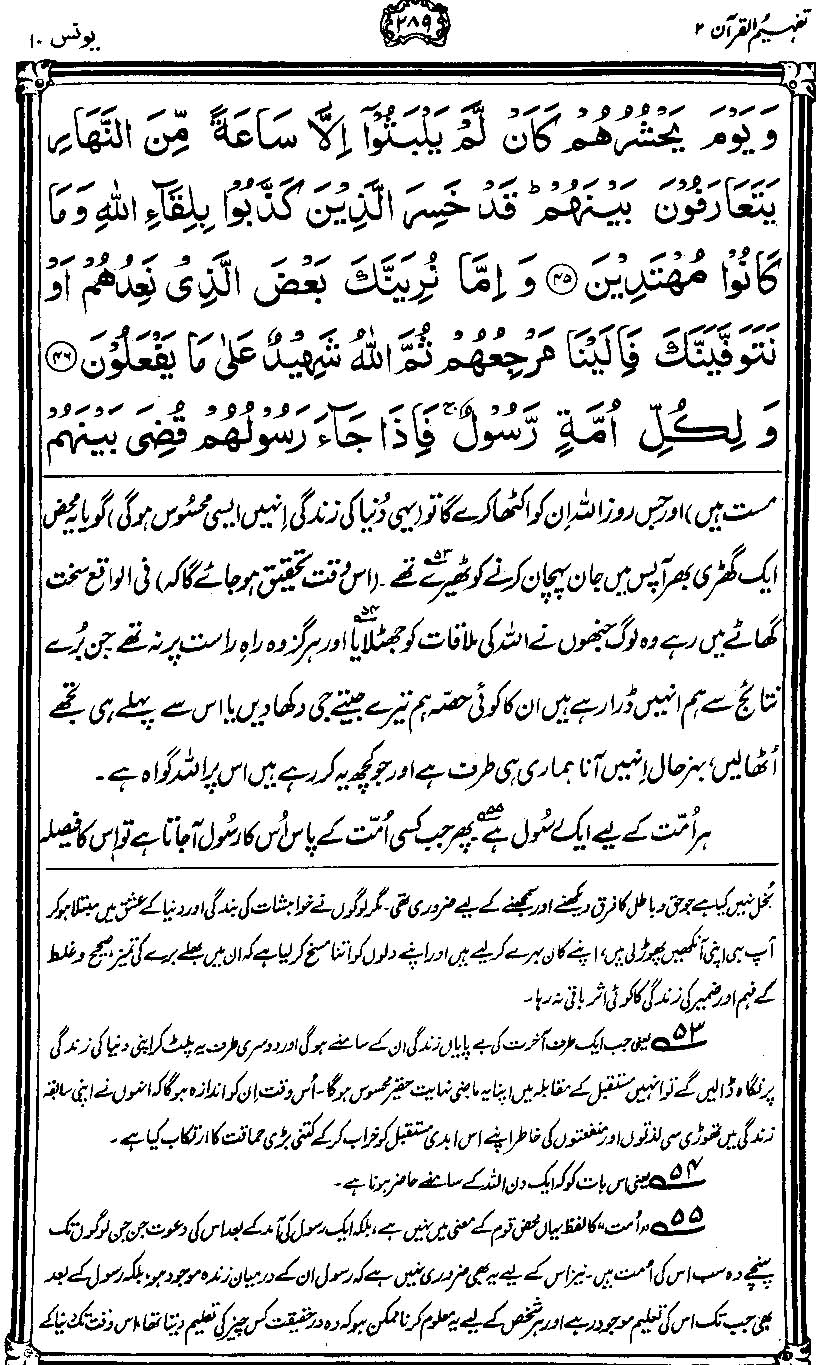 تفہیم القرآن ۲
۲۸۹
یونس ۱۰
وَيَوْمَ يَحْشُرُهُمْ كَاَنْ لَّمْ يَلْبَثُوْٓا اِلَّا سَاعَةً مِّنَ النَّهَارِ
يَتَعَارَفُوْنَ بَيْنَهُمْ ؕ قَدْ خَسِرَ الَّذِيْنَ كَذَّبُوْا بِلِقَآءِ اللّٰهِ وَمَا
كَانُوْا مُهْتَدِيْنَ ﴿۴۵﴾ وَ اِمَّا نُرِيَنَّكَ بَعْضَ الَّذِيْ نَعِدُهُمْ اَوْ
نَتَوَفَّيَنَّكَ فَاِلَيْنَا مَرْجِعُهُمْ ثُمَّ اللّٰهُ شَهِيْدٌ عَلٰى مَا يَفْعَلُوْنَ ﴿۴۶﴾
وَ لِكُلِّ اُمَّةٍ رَّسُوْلٌ ۚ فَاِذَا جَآءَ رَسُوْلُهُمْ قُضِيَ بَيْنَهُمْ
مست ہیں) اور جس روز اللہ اِن کو اکٹھا کرے گا تو (یہی دُنیا کی زندگی اِنہیں ایسی محسُوس ہوگی) گویا یہ محض
ایک گھڑی بھر آپس میں جان پہچان کرنے کو ٹھیرے تھے۵۳۔ (اس وقت تحقیق ہو جائے گا کہ) فی الواقع سخت
گھاٹے میں رہے وہ لوگ جنھوں نے اللہ کی ملاقات کو جھٹلایا۵۴ اور ہرگز وہ راہِ راست پر نہ تھے۔ جن بُرے
نتائج سے ہم انہیں ڈرا رہے ہیں ان کا کوئی حصّہ ہم تیرے جیتے جی دکھا دیں یا اس سے پہلے ہی تجھے
اُٹھا لیں، بہرحال اِنہیں آنا ہماری ہی طرف ہے اور جو کچھ یہ کر رہے ہیں اس پر اللہ گواہ ہے۔
ہر اُمّت کے لیے ایک رسُول ہے۵۵۔ پھر جب کسی اُمّت کے پاس اُس کا رسُول آجاتا ہے تو اس کا فیصلہ
بُخل نہیں کیا ہے جو حق و باطل کا فرق دیکھنے اور سمجھنے کے لیے ضروری تھی۔ مگر لوگوں نے خواہشات کی بندگی اور دنیا کے عشق میں مبتلا ہو کر
آپ ہی اپنی آنکھیں پھوڑ لی ہیں، اپنے کان بہرے کر لیے ہیں اور اپنے دلوں کو اتنا مسخ کر لیا ہے کہ ان میں بھلے برے کی تمیز، صحیح و غلط
کے فہم اور ضمیر کی زندگی کا کوئی اثر باقی نہ رہا۔
۵۳ یعنی جب ایک طرف آخرت کی بے پایاں زندگی ان کے سامنے ہوگی اور دوسری طرف یہ پلٹ کر اپنی دنیا کی زندگی
پر نگاہ ڈالیں گے تو انہیں مستقبل کے مقابلہ میں اپنا یہ ماضی نہایت حقیر محسوس ہوگا۔ اُس وقت اِن کو اندازہ ہوگا کہ انھوں نے اپنی سابقہ
زندگی میں تھوڑی سی لذتوں اور منفعتوں کی خاطر اپنے اس ابدی مستقبل کو خراب کر کے کتنی بڑی حماقت کا ارتکاب کیا ہے۔
۵۴ یعنی اس بات کو کہ ایک دن اللہ کے سامنے حاضر ہونا ہے۔
۵۵ ”اُمت“ کا لفظ یہاں محض قوم کے معنی میں نہیں ہے، بلکہ ایک رسول کی آمد کے بعد اس کی دعوت جن جن لوگوں تک
پہنچے وہ سب اس کی اُمت ہیں۔ نیز اس کے لیے یہ بھی ضروری نہیں ہے کہ رسول ان کے درمیان زندہ موجود ہو، بلکہ رسول کے بعد
بھی جب تک اس کی تعلیم موجود رہے اور ہر شخص کے لیے یہ معلوم کرنا ممکن ہو کہ وہ درحقیقت کس چیز کی تعلیم دیتا تھا، اس وقت تک دنیا کے